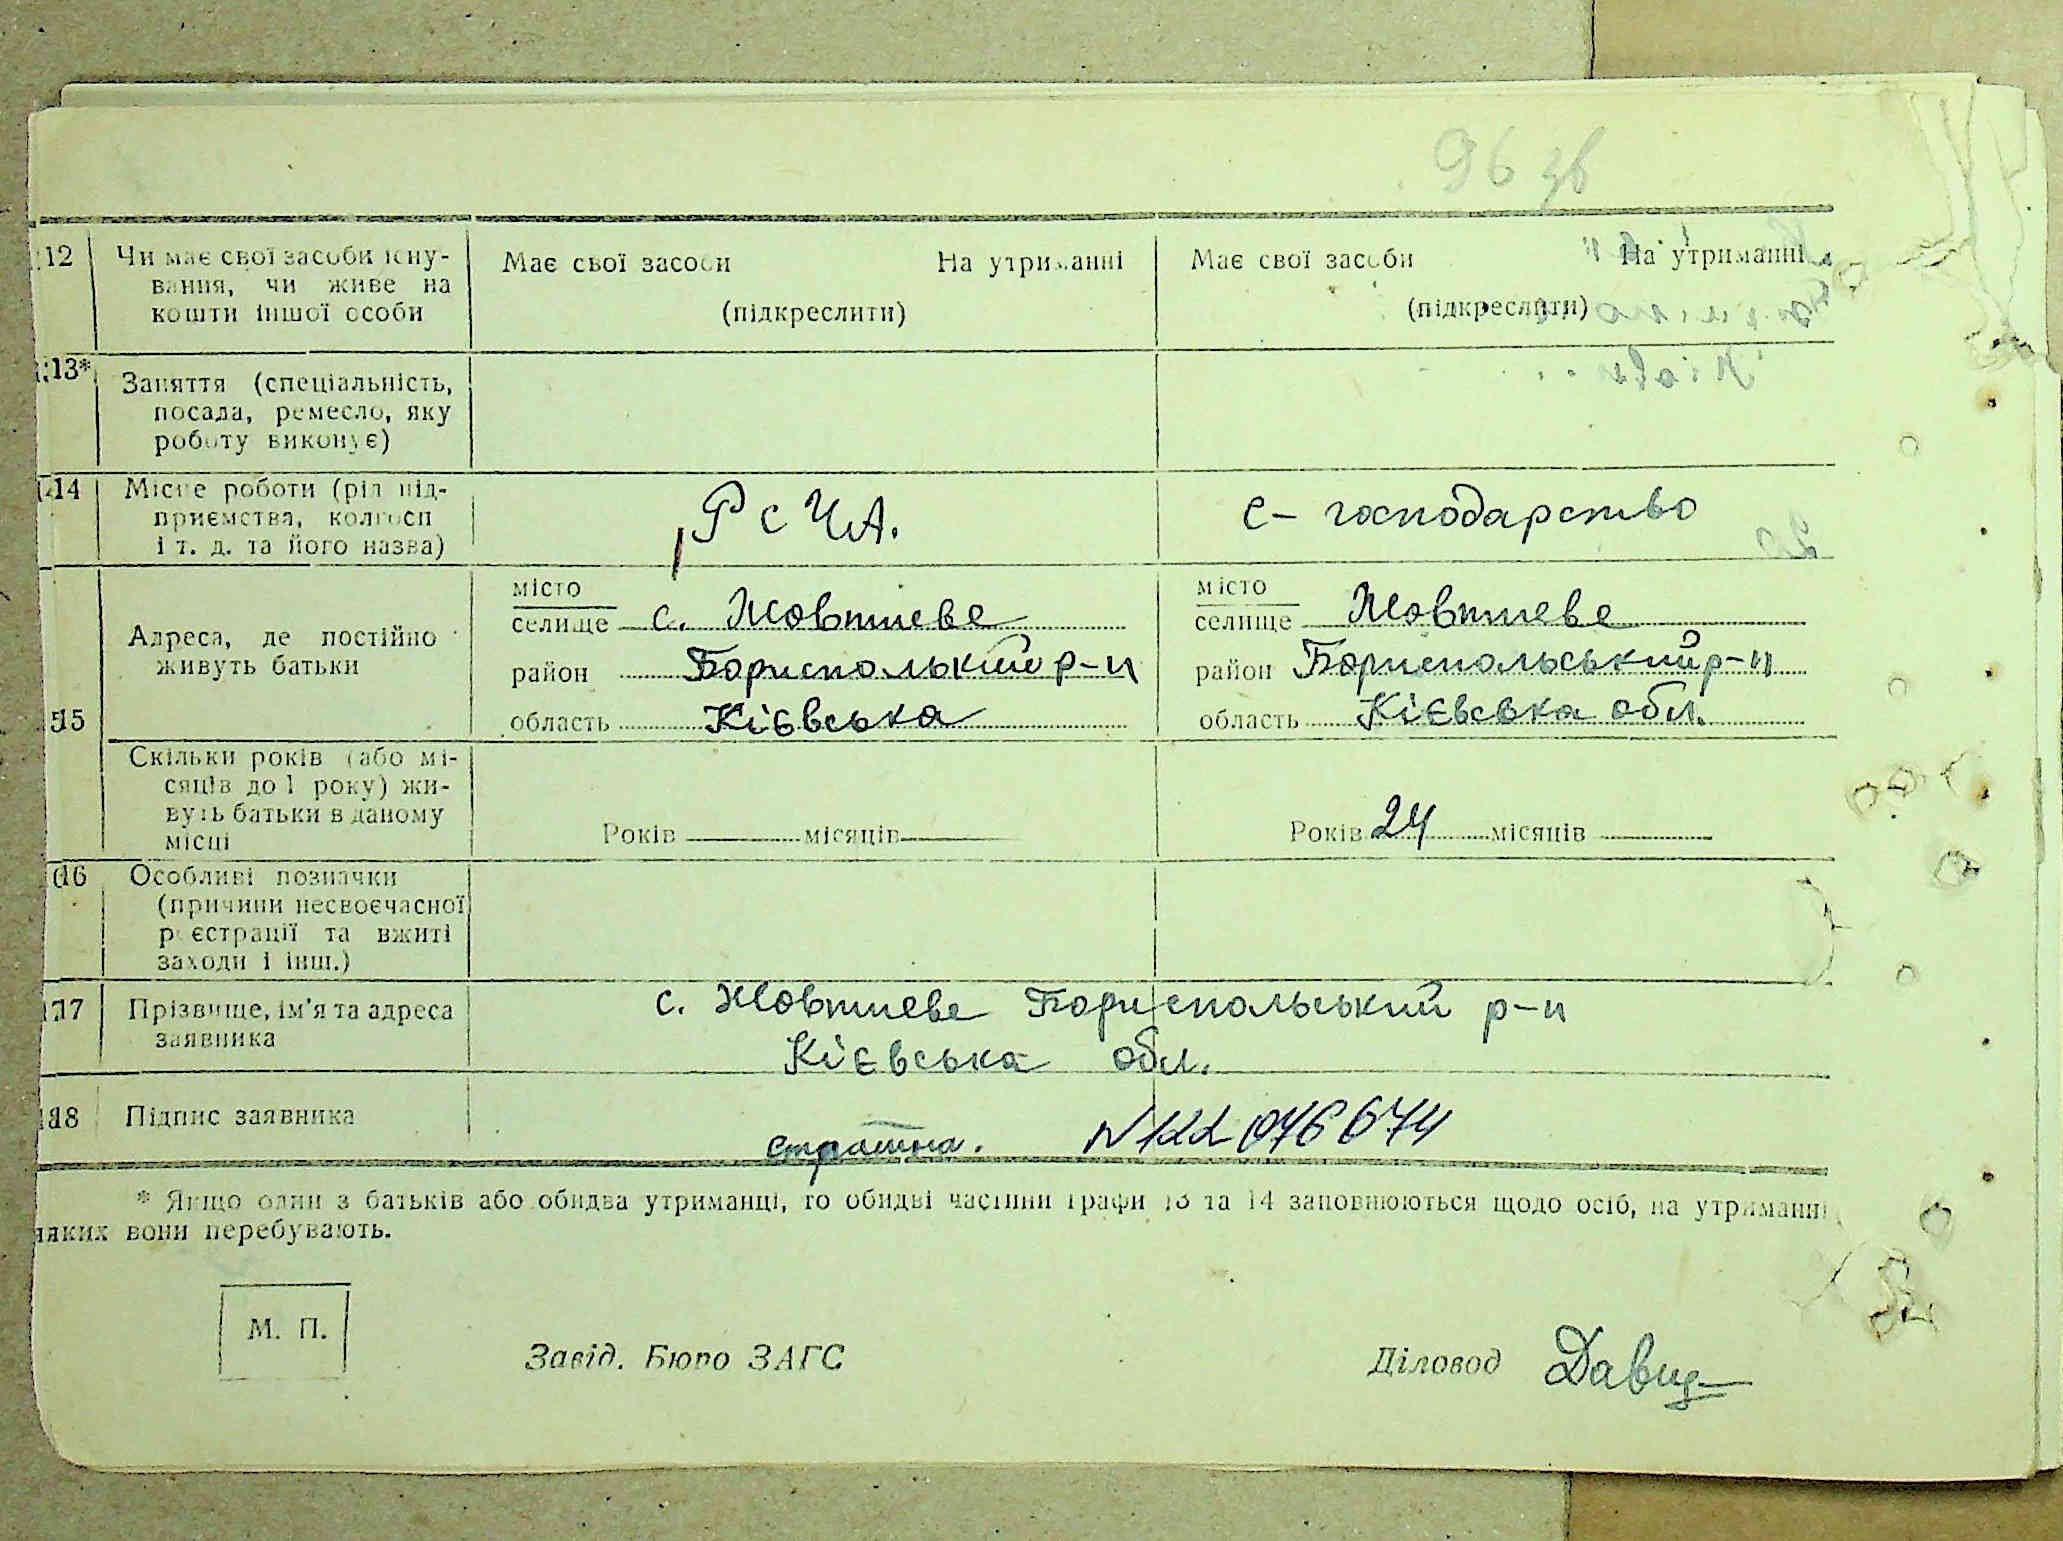 96 зв
12 Чи має свої засоби існу-
вання, чи живе на
кошти іншої особи
Має свої засоби На утриманні
(підкреслити)
Має свої засоби На утриманні
(підкреслити)
13* Заняття (спеціальність,
посада, ремесло, яку
роботу виконує)
14 Місце роботи (рід під-
приємства, колгосп
і т. д. та його назва)
РсЧА.
с-господарство
15 Адреса, де постійно
живуть батьки
місто
селище с. Жовтневе
район Бориспольский р-н
область Кієвська
місто
селище Жовтневе
район Бориспольський р-н
область Кієвська обл.
Скільки років (або мі-
сяців до 1 року) жи-
вуть батьки в даному
місці
Років місяців
Років 24 місяців
16 Особливі позначки
(причини несвоєчасної
реєстрації та вжиті
заходи і інш.)
17 Прізвище, ім'я та адреса
заявника
с. Жовтневе Бориспольський р-н
Кієвська обл.
18 Підпис заявника
* Якщо один з батьків або обидва утриманці, то обидві частини графи 13 та 14 заповнюються щодо осіб, на утриманні
яких вони перебувають.
М. П.
Завід. Бюро ЗАГС
Діловод Давид